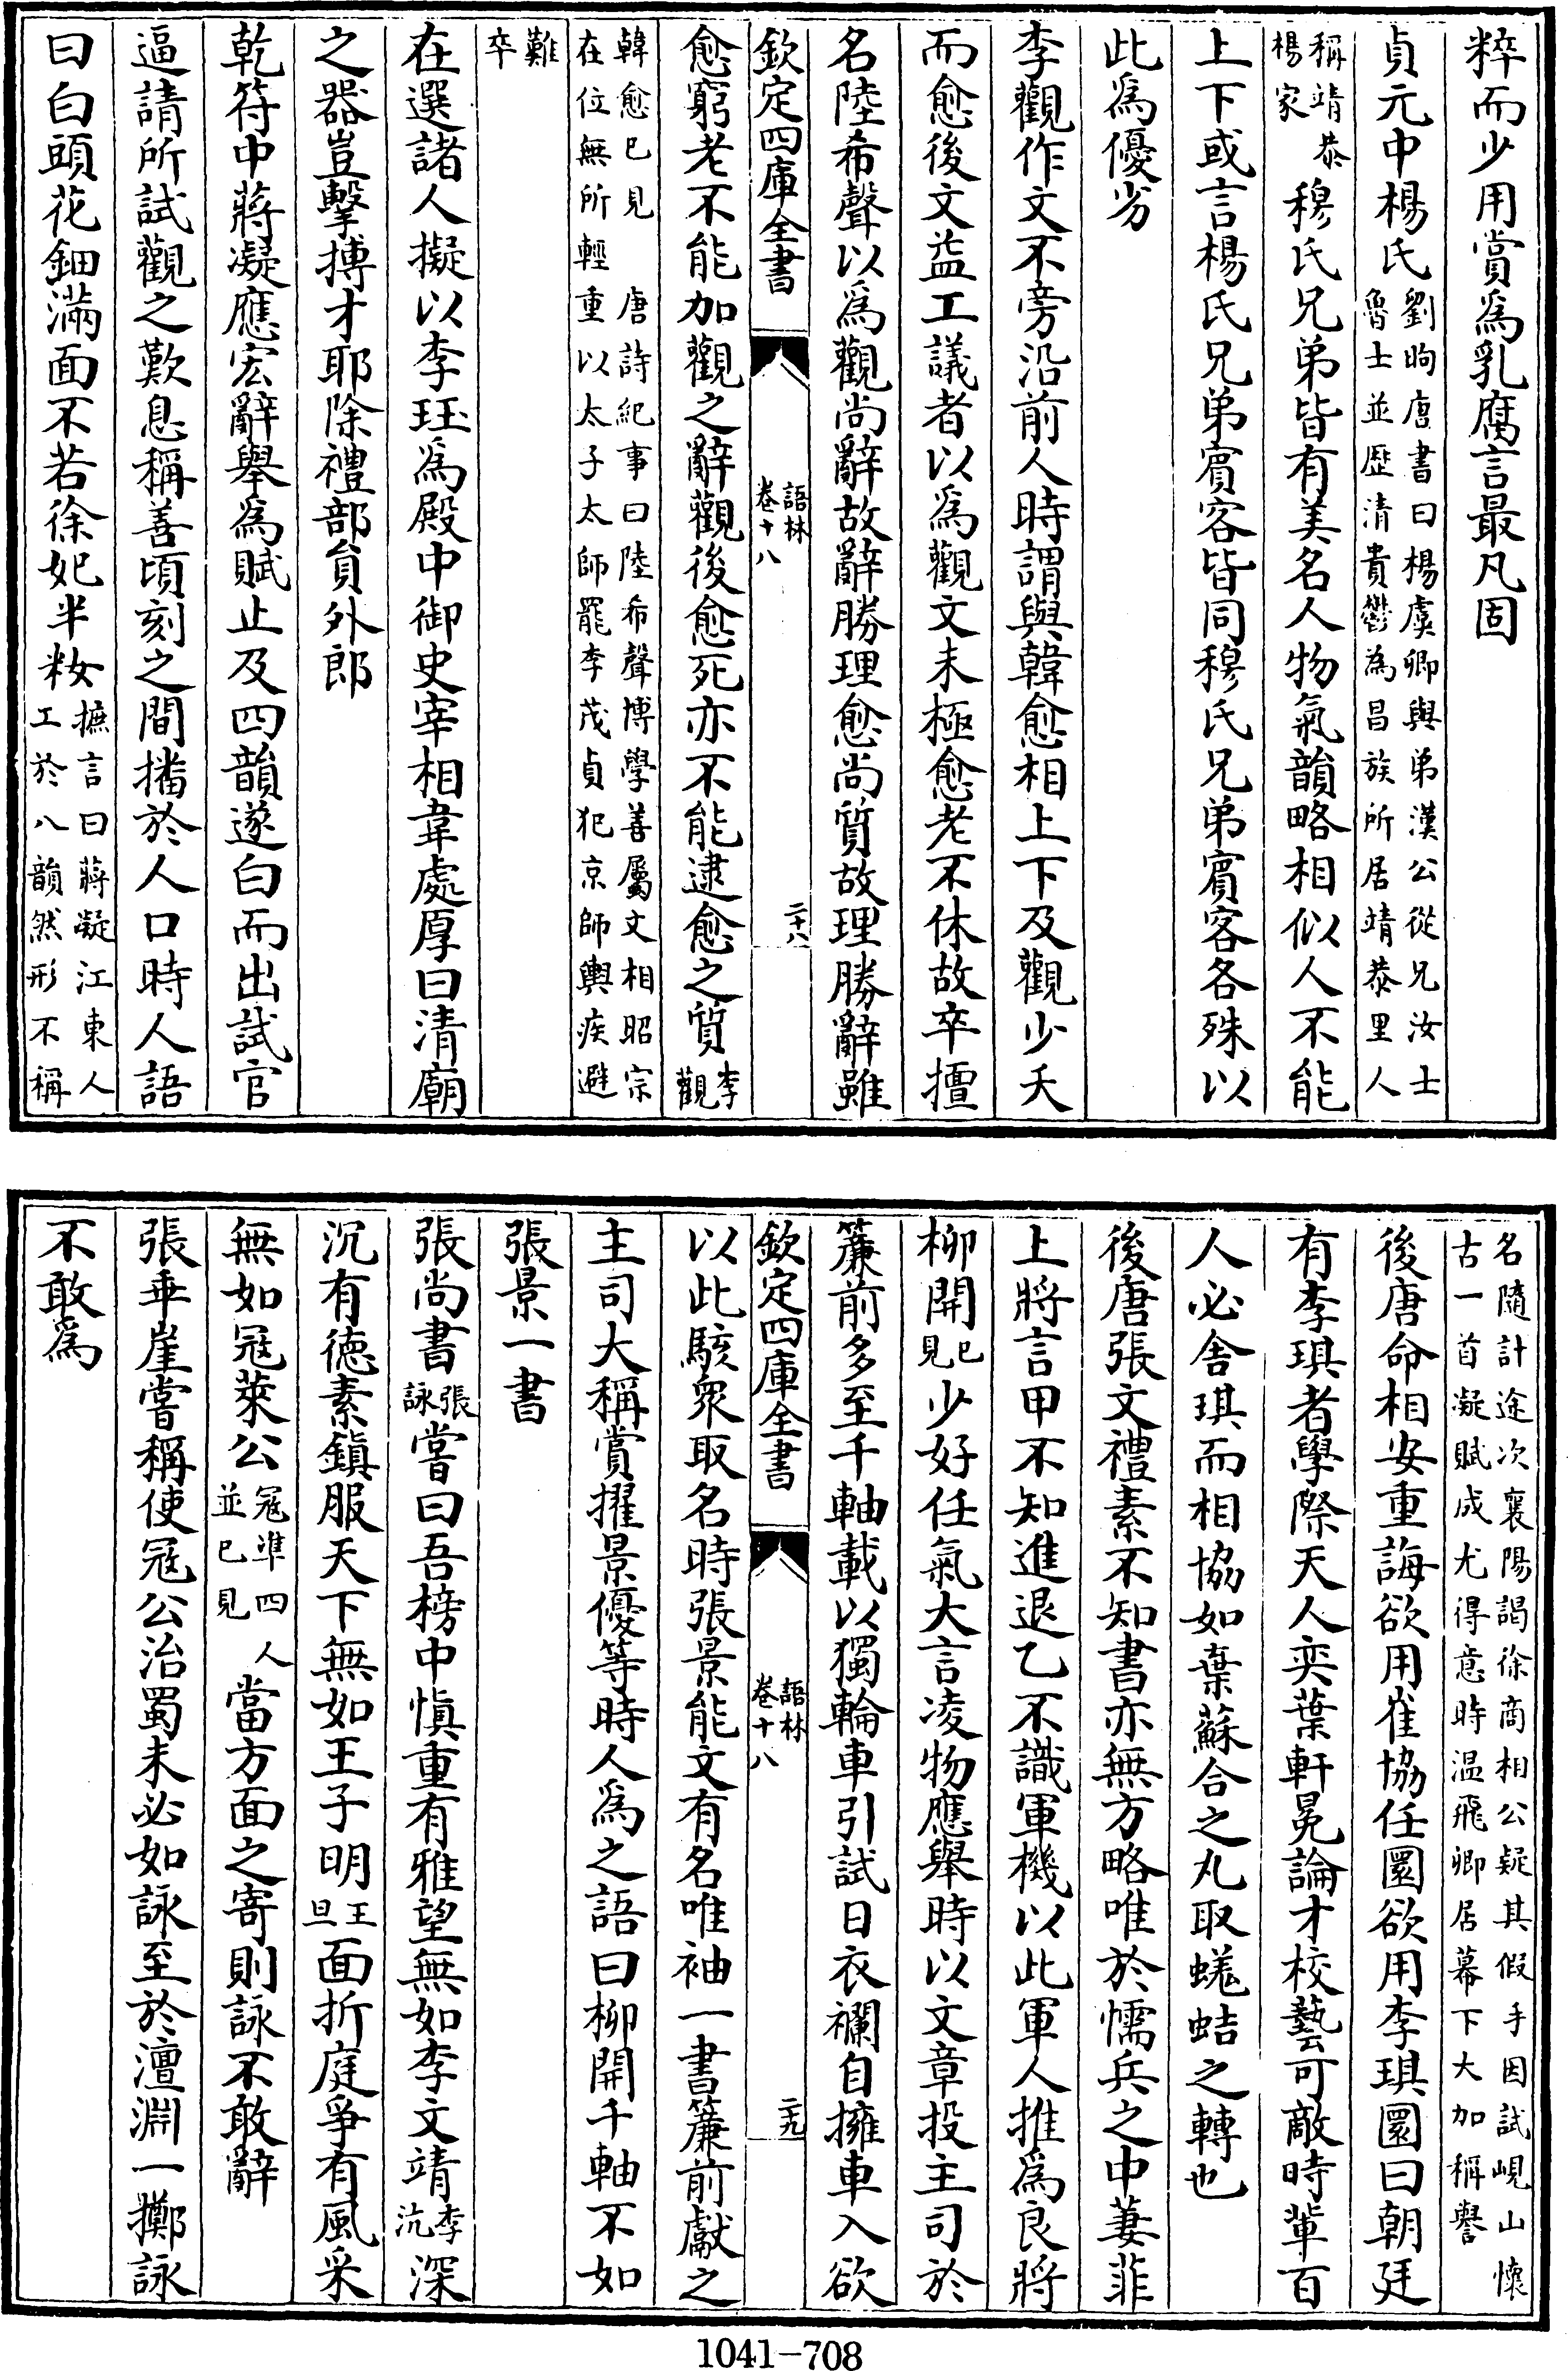 粹而少用賞爲乳腐言最凡固
貞元中楊氏劉昫唐書曰楊虞卿與弟漢公從兄汝士魯士並歷清貴鬱為昌族所居靖恭里人
稱靖恭楊家穆氏兄弟皆有美名人物氣韻略相似人不能
上下或言楊氏兄弟賓客皆同穆氏兄弟賓客各殊以
此爲優劣
李觀作文不旁沿前人時謂與韓愈相上下及觀少夭
而愈後文益工議者以爲觀文未極愈老不休故卒擅
名陸希聲以爲觀尚辭故辭勝理愈尚質故理勝辭雖
欽定四庫全書 語林卷十八 二十八
愈窮老不能加觀之辭觀後愈死亦不能逮愈之質李觀
韓愈已見 唐詩紀事曰陸希聲博學善屬文相昭宗在位無所輕重以太子太師罷李茂貞犯京師輿疾避
難卒
在選諸人擬以李珏爲殿中御史宰相韋處厚曰清廟
之器豈擊搏才耶除禮部員外郎
乾符中蔣凝應宏辭舉爲賦止及四韻遂白而出試官
逼請所試觀之歎息稱善頃刻之間播於人口時人語
曰白頭花鈿滿面不若徐妃半粧摭言曰蔣凝江東人工於八韻然形不稱
名隨計途次襄陽謁徐商相公疑其假手因試峴山懷古一首凝賦成尤得意時温飛卿居幕下大加稱譽
後唐命相安重誨欲用崔協任圜欲用李琪圜曰朝廷
有李琪者學際天人奕葉軒冕論才校藝可敵時輩百
人必舍琪而相協如棄蘇合之丸取蜣蛣之轉也
後唐張文禮素不知書亦無方略唯於懦兵之中萋菲
上將言甲不知進退乙不識軍機以此軍人推爲良將
柳開已見少好任氣大言凌物應舉時以文章投主司於
簾前多至千軸載以獨輪車引試日衣襴自擁車入欲
欽定四庫全書 語林卷十八 二十九
以此駭衆取名時張景能文有名唯袖一書簾前獻之
主司大稱賞擢景優等時人爲之語曰柳開千軸不如
張景一書
張尚書張詠嘗曰吾榜中慎重有雅望無如李文靖李沆深
沉有德素鎮服天下無如王子明王旦面折庭爭有風采
無如寇萊公寇準四人並已見當方面之寄則詠不敢辭
張乖崖嘗稱使寇公治蜀未必如詠至於澶淵一擲詠
不敢爲
1041-708